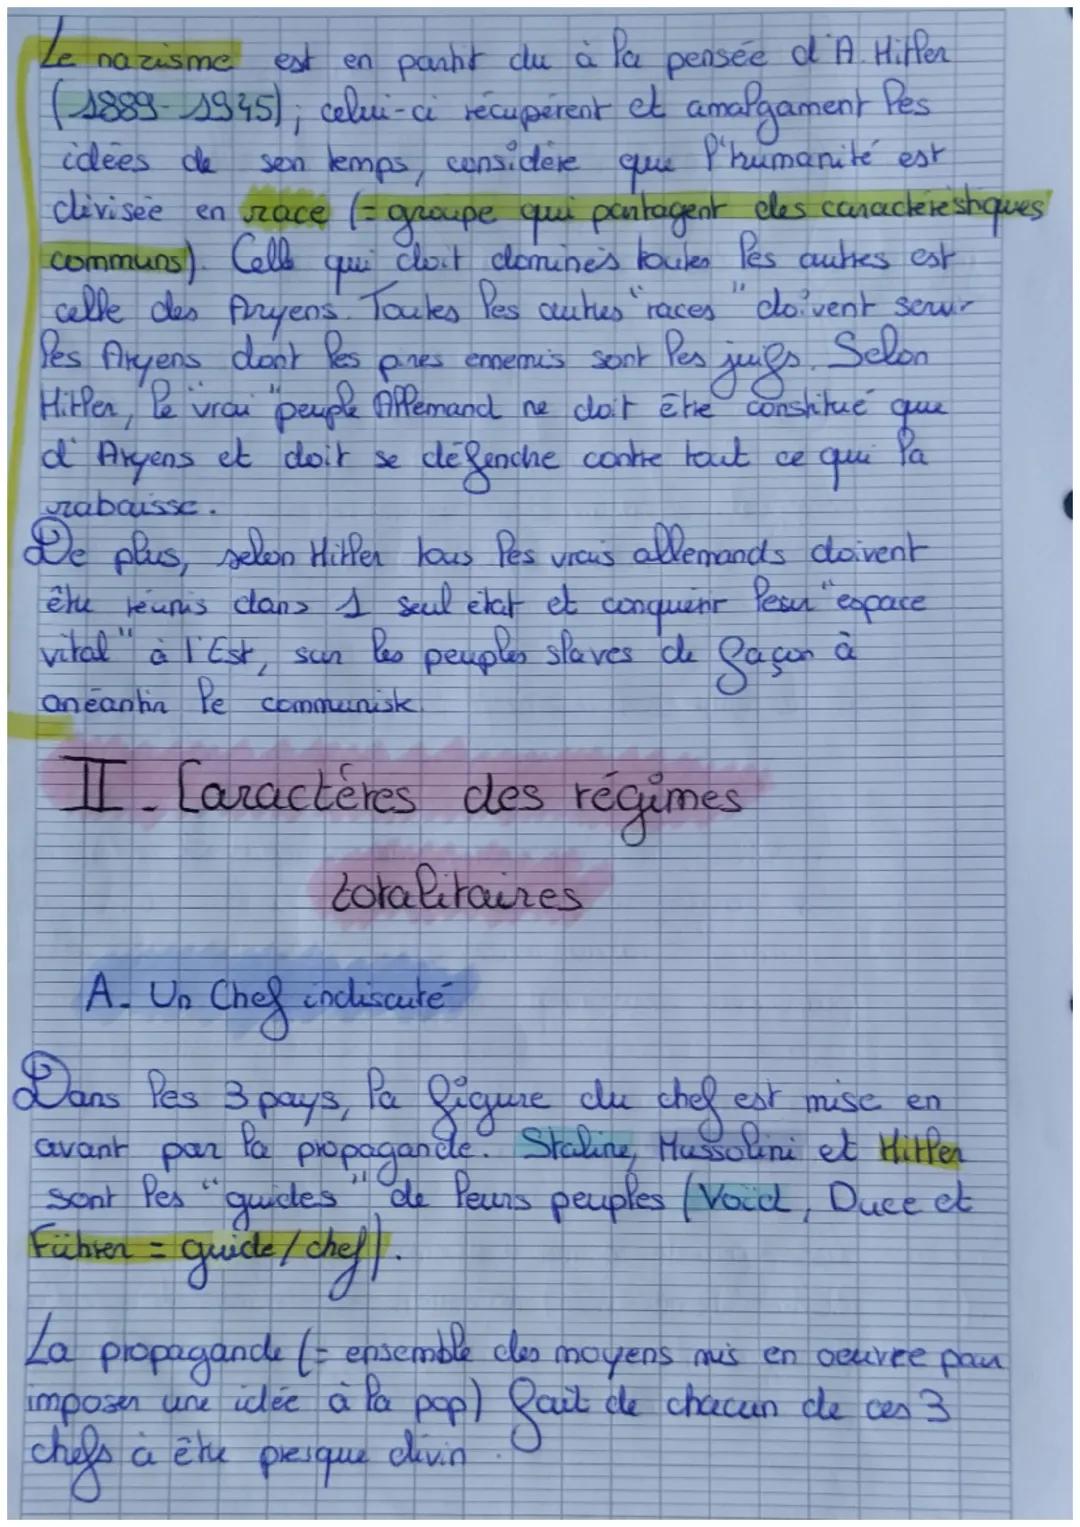 Le nazisme est en partit du à la pensée d'A. Hitler
(1889-1945), celui-ci récupèrent et amalgament les
idées de son temps, considère que l'humanité est
divisée en race (= groupe qui partagent des caractéréstiques
communs). Celle qui doit dominés toutes les autres est
celle des Aryens. Toutes les autres "races" doivent servir
les Aryens dont les pires ennemis sont les juifs. Selon
Hitler, le "vrai" peuple Allemand ne doit être constitué que
d'Aryens et doit se défendre contre tout ce qui la
rabaisse.
De plus, selon Hitler tous les vrais allemands doivent
être réunis dans 1 seul état et conquérir leur "espace
vital" à l'Est, sur les peuples slaves de façon à
anéantir le communiste.
II - Caractères des régimes
totalitaires
A. Un Chef indiscuté
Dans les 3 pays, la figure du chef est mise en
avant par la propagande. Staline, Mussolini et Hitler
sont les "guides" de leurs peuples (Vojd, Duce et
Führer = guide/chef).
La propagande (= ensemble des moyens mis en oeuvre pour
imposer une idée à la pop) fait de chacun de ces 3
chefs à être presque divin.